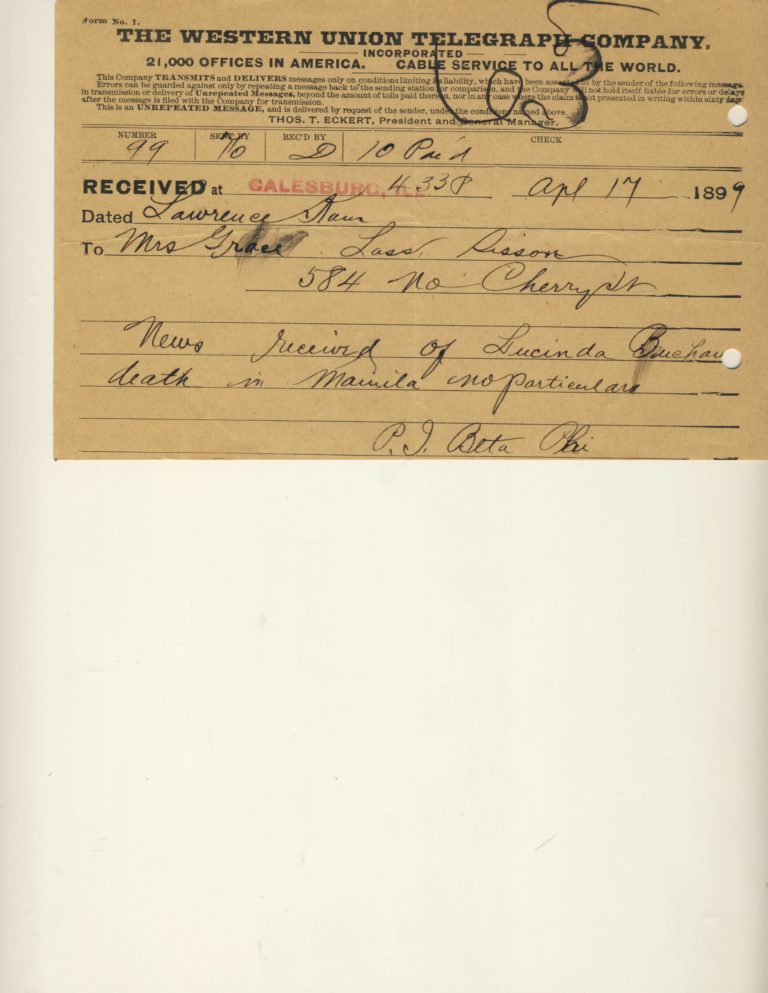 Form No. 1.
THE WESTERN UNION TELEGRAPH COMPANY.
INCORPORATED
21,000 OFFICES IN AMERICA. CABLE SERVICE TO ALL THE WORLD.
This Company TRANSMITS and DELIVERS messages only on conditions limiting its liability, which have been assented to by the sender of the following message.
Errors can be guarded against only by repeating a message back to the sending station for comparison, and the Company will not hold itself liable for errors or delays
in transmission or delivery of Unrepeated Messages, beyond the amount of tolls paid thereon, nor in any case where the claim is not presented in writing within sixty days
after the message is filed with the Company for transmission.
This is an UNREPEATED MESSAGE, and is delivered by request of the sender, under the conditions named above.
THOS. T. ECKERT, President and General Manager.
NUMBER SENT BY REC'D BY CHECK
99 D 10 Paid
RECEIVED at GALESBURG, ILL. 4 33 P Apl 17 1899
Dated Lawrence Kans
To Mrs Grace Lass Sisson
584 No Cherry St
News received of Lucinda
death in Manila no particulars
P. I. Beta Phi